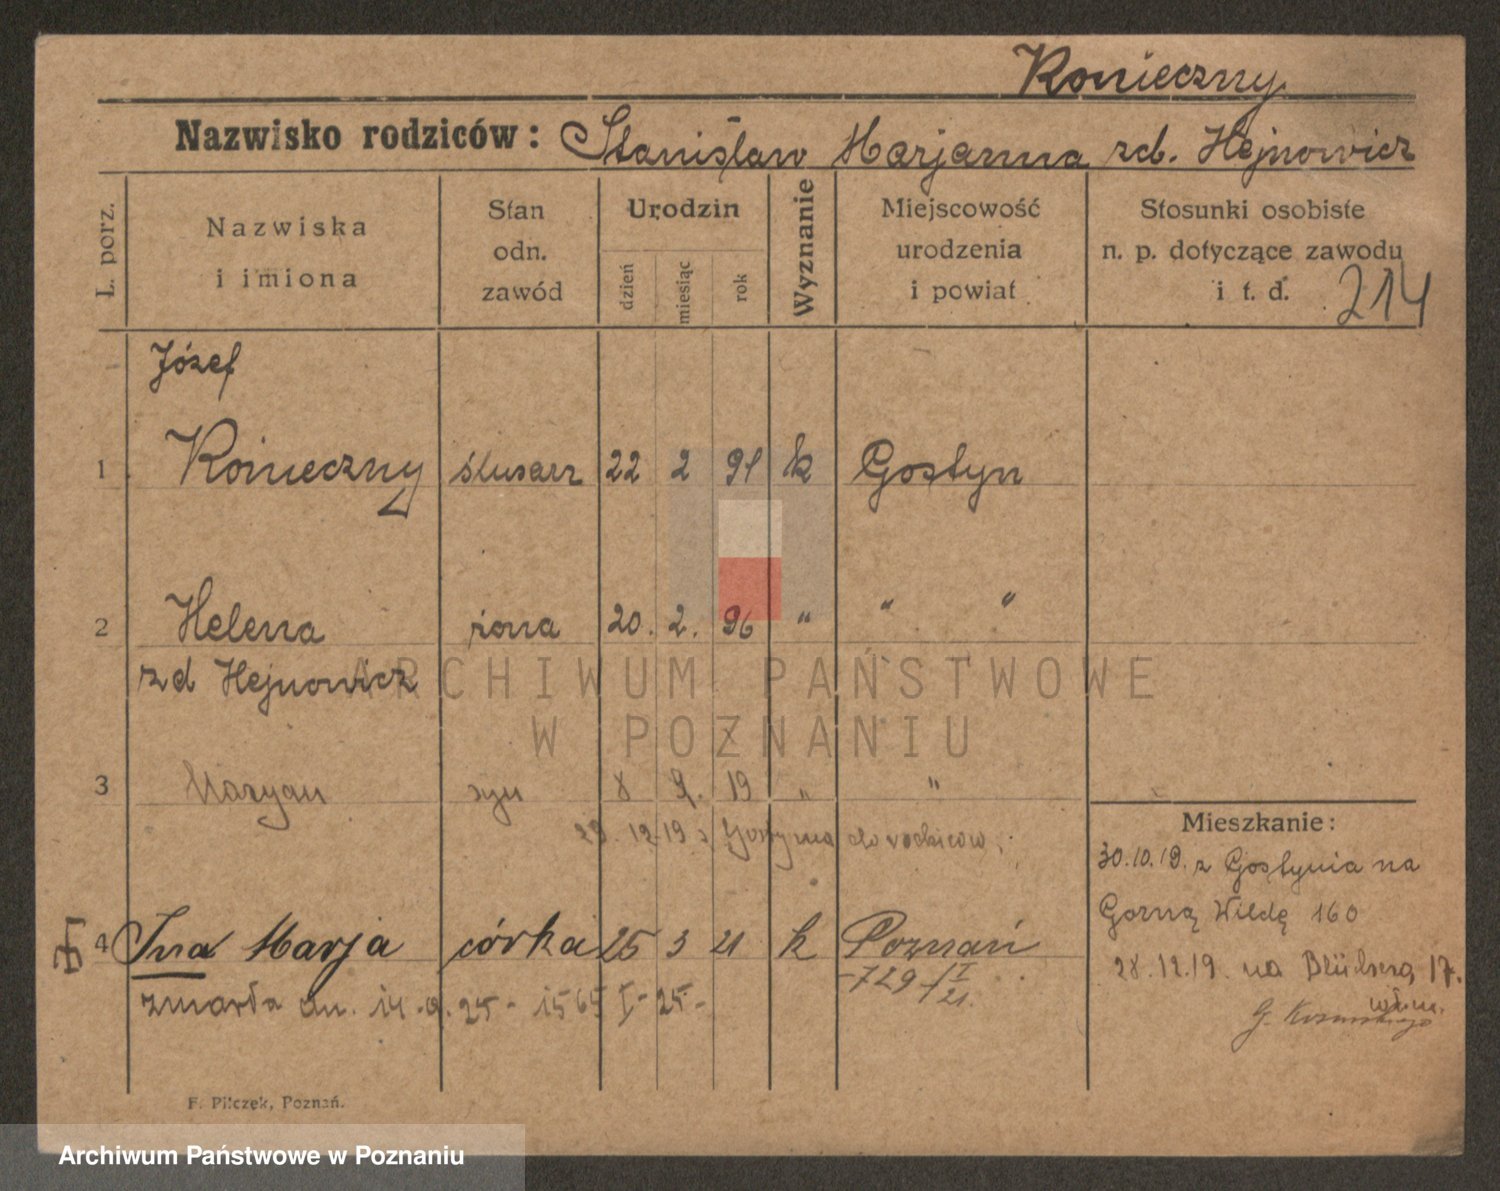 Konieczny
Nazwisko rodziców: Stanisław Marjanna zd. Hejnowicz
L. porz.
Nazwiska
i imiona
Stan
odn.
zawód
Urodzin
dzień
miesiąc
rok
Wyznanie
Miejscowość
urodzenia
i powiat
Stosunki osobiste
n. p. dotyczące zawodu
i t. d. 214
Józef
1 Konieczny ślusarz 22 2 91 k Gostyn
2 Helena żona 20. 2. 96 " " "
zd Hejnowicz
ARCHIWUM PAŃSTWOWE
W POZNANIU
3 Maryan syn 8 9. 19 " "
28 12 19 z Gostynia do rodziców.
Mieszkanie:
30.10.19. z Gostynia na
Gorną Wildę 160
28.12.19. na 17.
G.
4 Ina Marja córka 25 3 21 k Poznań
729/I
21.
zmarła dn. 14.9.25 - 1565 I - 25 -
F. Pilczek, Poznań.
Archiwum Państwowe w Poznaniu